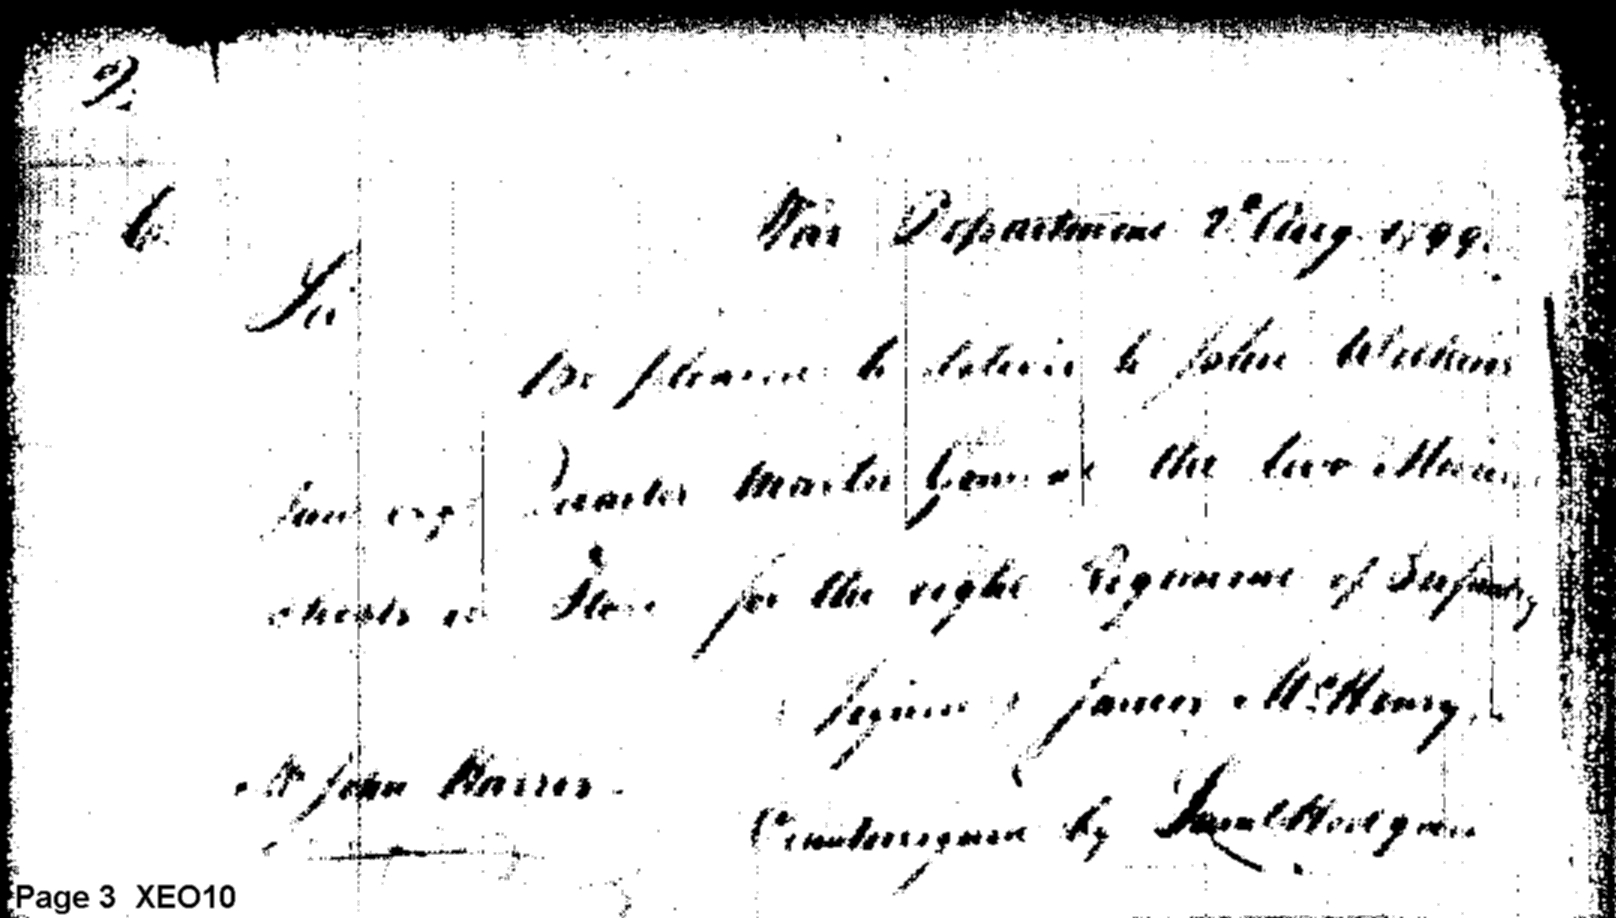 6.
War Department 2d Aug. 1799.
Sir
Be pleased to deliver to John Wilkins
Jun esqr Quarter Master General the two Medicine
chests in Store for the eight Regiment of Infantry
Signed James McHenry
Mr John Harris
Countersigned by Saml Hodgdon
Page 3 XEO10